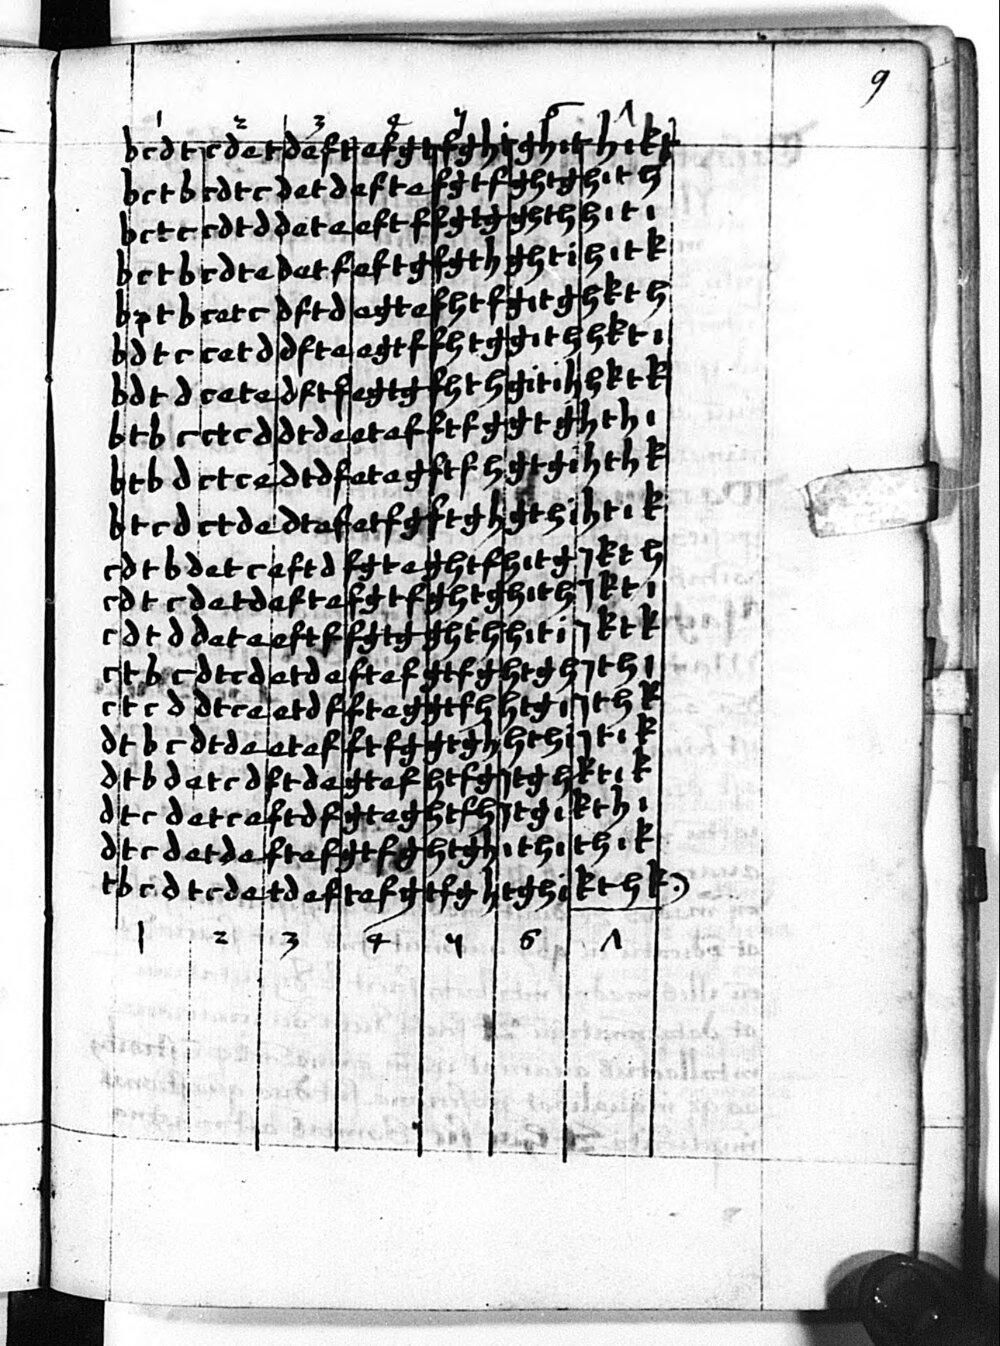 9
1 2 3 4 5 6 7
bcdt cdet deft efgt fght ghit hikt
bctb cdtc detd efte fgtf ghtg hith
bctc cdtd dete eftf fgtg ghth hiti
bctb cdte detf eftg fgth ghti hitk
bptb cetc dftd egte fhtf gitg hkth
bdtc cetd dfte egtf fhtg gith hkti
bdtd cete dftf egtg fhth giti hktk
btbc ctcd dtde etef ftfg gtgh hthi
btbd ctce dtdf eteg ftfh gtgi hthk
btcd ctde dtef etfg ftgh gthi htik
cdtb detc eftd fgte ghtf hitg ikth
cdtc detd efte fgtf ghtg hith ikti
cdtd dete eftf fgtg ghth hiti iktk
ctbc dtcd etde ftef gtfg htgh ithi
ctcd dtce etdf fteg gtfh htgi ithk
dtbc dtde etef ftfg gtgh hthi itik
dtbd etcd ftde gtef htfg itgh ktik
dtcd etce ftdf gteg htfh itgi kthi
dtcd etde ftef gtfg htgh ithi thik
tbcd tcde tdef tefg tfgh tghi kthk
1 2 3 4 5 6 7